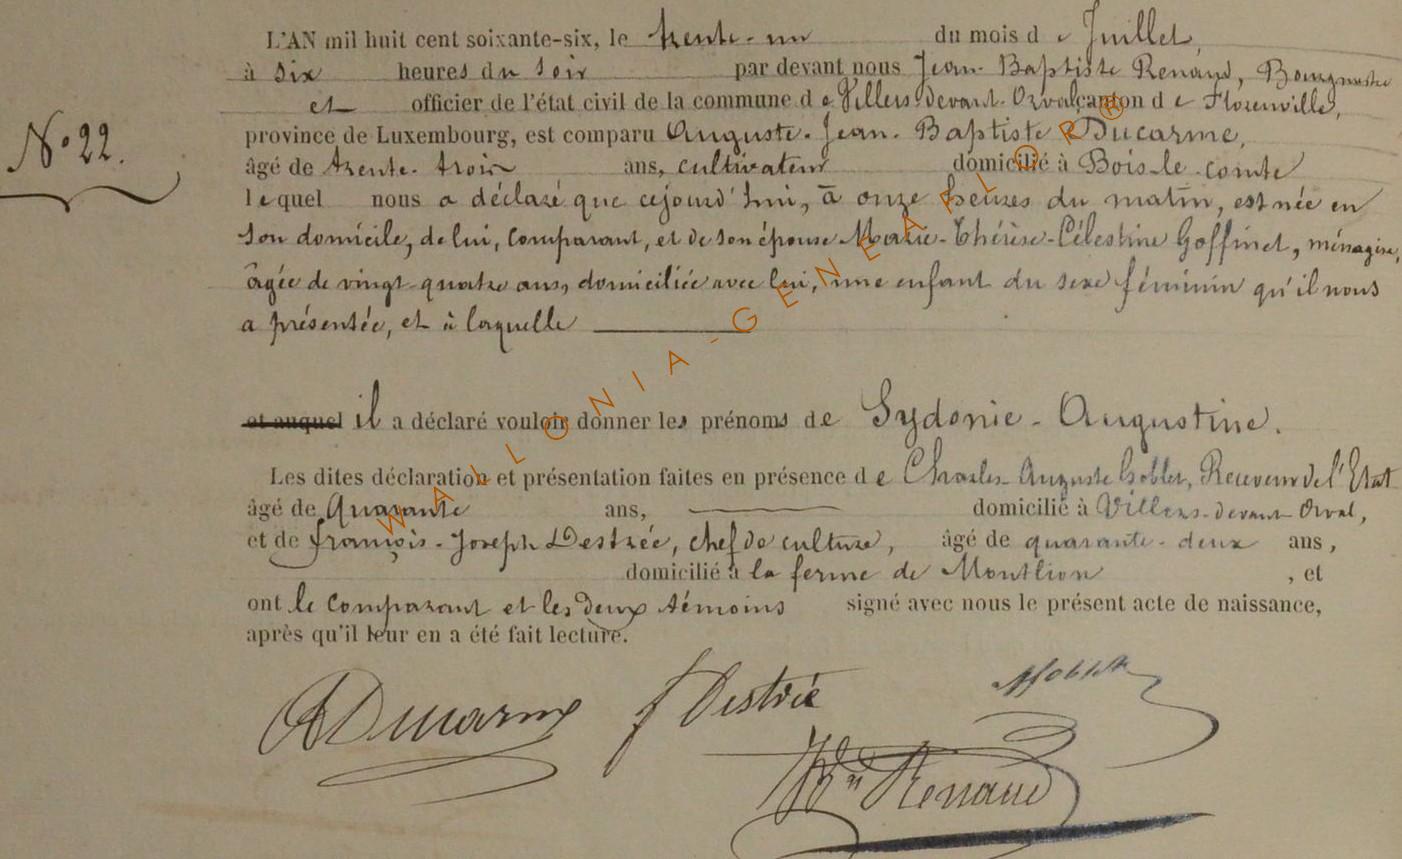 L'AN mil huit cent soixante-six, le trente-un du mois de Juillet,
à six heures du soir par devant nous Jean-Baptiste Renaud, Bourgmestre
et officier de l'état civil de la commune de Villers-devant-Orval, canton de Florenville,
province de Luxembourg, est comparu Auguste-Jean-Baptiste Ducarme,
N° 22.
âgé de trente-trois ans, cultivateur domicilié à Bois-le-comte
lequel nous a déclaré que cejourd'hui, à onze heures du matin, est née en
son domicile, de lui, comparant, et de son épouse Marie-Thérèse-Célestine Goffinet, ménagère,
âgée de vingt-quatre ans, domiciliée avec lui, une enfant du sexe féminin qu'il nous
a présentée, et à laquelle
et auquel il a déclaré vouloir donner les prénoms de Sydonie-Augustine.
Les dites déclaration et présentation faites en présence de Charles-Auguste Goblet, Receveur de l'Etat
âgé de Quarante ans, domicilié à Villers-devant-Orval,
et de françois-Joseph Destrée, chef de culture, âgé de quarante-deux ans,
domicilié à la ferme de Montlion, et
ont le comparant et les deux témoins signé avec nous le présent acte de naissance,
après qu'il leur en a été fait lecture.
ADucarme f Destrée AGoblet
JBte Renaud
WALLONIA-GENEALOR®